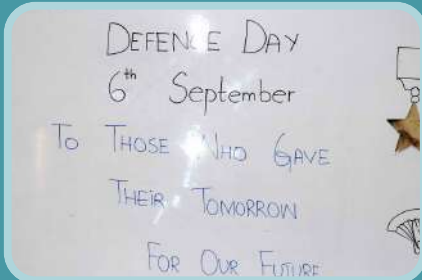 DEFENCE DAY
6th September
To THOSE WHO GAVE
THEIR TOMORROW
FOR OUR FUTURE